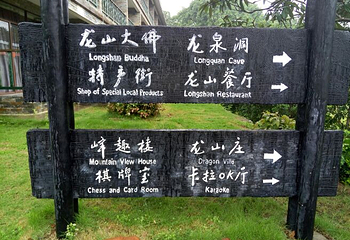 龙山大佛 龙泉洞
Longshan Buddha Longquan Cave
特产街 龙山餐厅
Shop of Special Local Products Longshan Restaurant
峰趣楼 龙山庄
Mountain View House Dragon Villa
棋牌室 卡拉OK厅
Chess and Card Room Karaoke